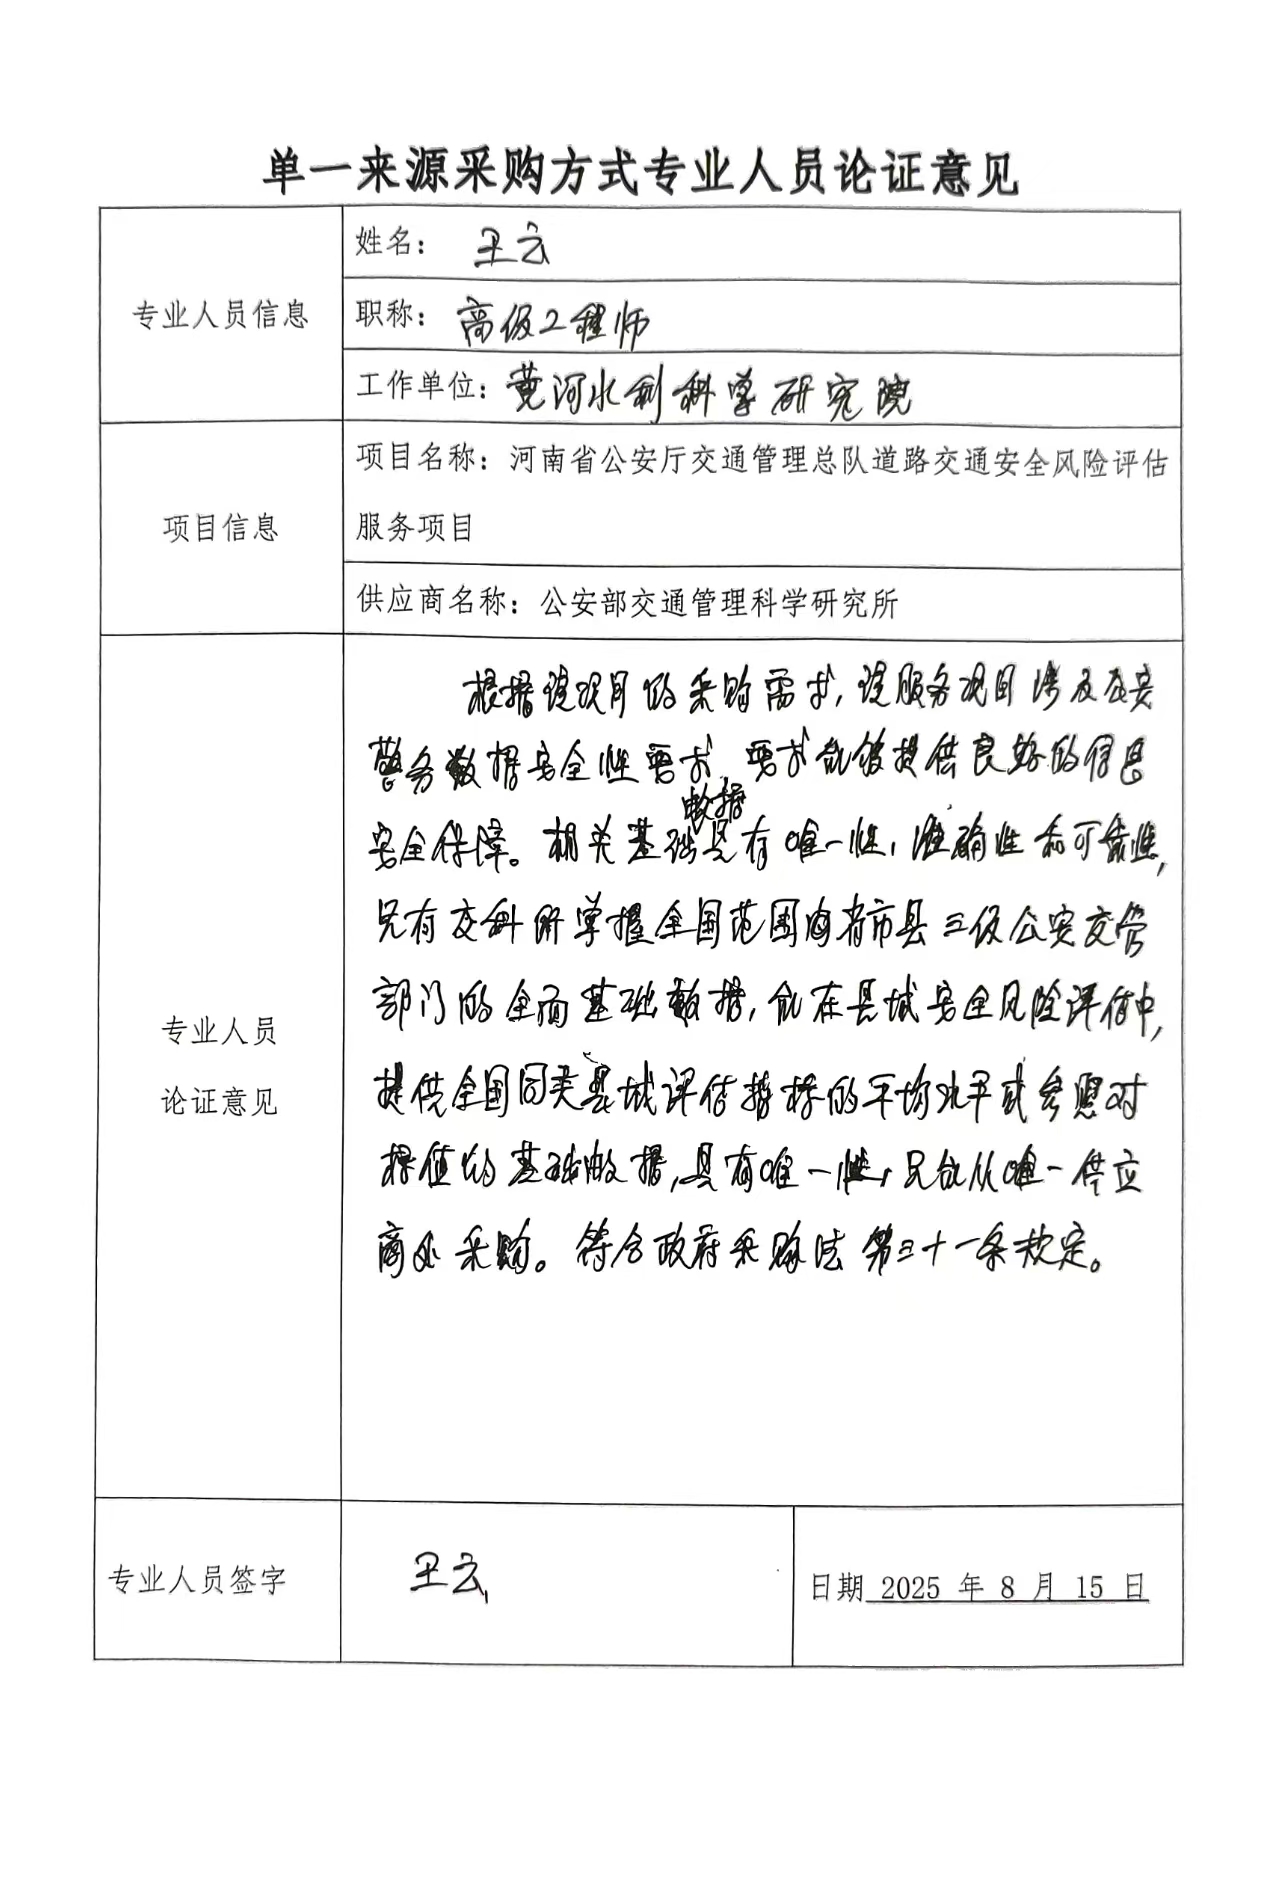 单一来源采购方式专业人员论证意见
专业人员信息
姓名：王云
职称：高级工程师
工作单位：黄河水利科学研究院
项目信息
项目名称：河南省公安厅交通管理总队道路交通安全风险评估
服务项目
供应商名称：公安部交通管理科学研究所
专业人员
论证意见
根据该项目的采购需求，该服务项目涉及公安
警务数据安全性要求，要求能够提供良好的信息
安全保障。相关基础数据具有唯一性，准确性和可靠性，
只有交科所掌握全国范围内省市县三级公安交管
部门的全面基础数据，能在县域安全风险评估中，
提供全国同类县域评估指标的平均水平或参照对
标值的基础数据，具有唯一性，只能从唯一供应
商处采购。符合政府采购法第三十一条规定。
专业人员签字
王云
日期 2025 年 8 月 15 日